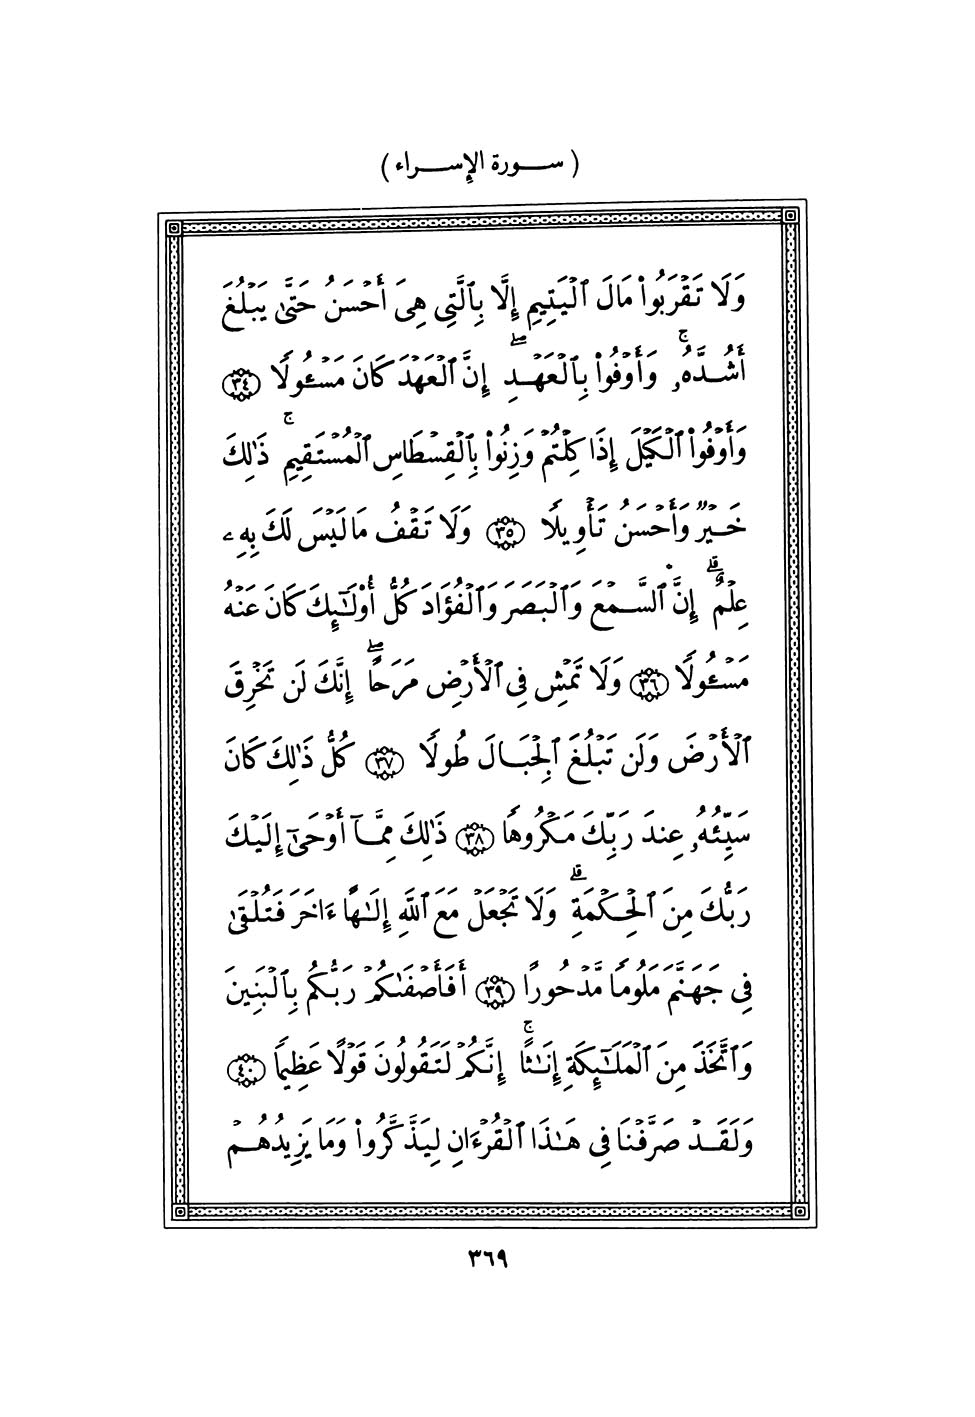 ( سورة الإسراء )
وَلَا تَقْرَبُوا۟ مَالَ ٱلْيَتِيمِ إِلَّا بِٱلَّتِى هِىَ أَحْسَنُ حَتَّىٰ يَبْلُغَ
أَشُدَّهُۥ ۚ وَأَوْفُوا۟ بِٱلْعَهْدِ ۖ إِنَّ ٱلْعَهْدَ كَانَ مَسْـُٔولًا ٣٤
وَأَوْفُوا۟ ٱلْكَيْلَ إِذَا كِلْتُمْ وَزِنُوا۟ بِٱلْقِسْطَاسِ ٱلْمُسْتَقِيمِ ۚ ذَٰلِكَ
خَيْرٌ وَأَحْسَنُ تَأْوِيلًا ٣٥ وَلَا تَقْفُ مَا لَيْسَ لَكَ بِهِۦ
عِلْمٌ ۚ إِنَّ ٱلسَّمْعَ وَٱلْبَصَرَ وَٱلْفُؤَادَ كُلُّ أُو۟لَـٰٓئِكَ كَانَ عَنْهُ
مَسْـُٔولًا ٣٦ وَلَا تَمْشِ فِى ٱلْأَرْضِ مَرَحًا ۖ إِنَّكَ لَن تَخْرِقَ
ٱلْأَرْضَ وَلَن تَبْلُغَ ٱلْجِبَالَ طُولًا ٣٧ كُلُّ ذَٰلِكَ كَانَ
سَيِّئُهُۥ عِندَ رَبِّكَ مَكْرُوهًا ٣٨ ذَٰلِكَ مِمَّآ أَوْحَىٰٓ إِلَيْكَ
رَبُّكَ مِنَ ٱلْحِكْمَةِ ۗ وَلَا تَجْعَلْ مَعَ ٱللَّهِ إِلَـٰهًا ءَاخَرَ فَتُلْقَىٰ
فِى جَهَنَّمَ مَلُومًا مَّدْحُورًا ٣٩ أَفَأَصْفَىٰكُمْ رَبُّكُم بِٱلْبَنِينَ
وَٱتَّخَذَ مِنَ ٱلْمَلَـٰٓئِكَةِ إِنَـٰثًا ۚ إِنَّكُمْ لَتَقُولُونَ قَوْلًا عَظِيمًا ٤٠
وَلَقَدْ صَرَّفْنَا فِى هَـٰذَا ٱلْقُرْءَانِ لِيَذَّكَّرُوا۟ وَمَا يَزِيدُهُمْ
٣٦٩